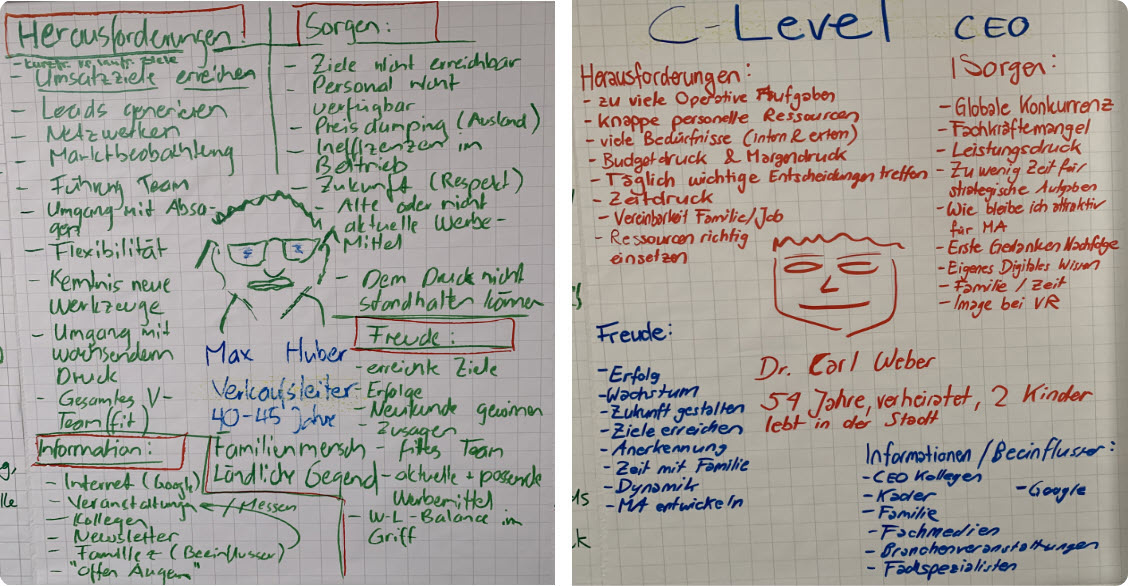 Herausforderungen:
Umsatzziele erreichen
- Leads generieren
- Netzwerken
- Marktbeobachtung
- Führung Team
- Umgang mit Absa-
gen
- Flexibilität
- Kenntnis neue
Werkzeuge
- Umgang mit
wachsendem
Druck
- Gesamtes V-
Team (fit)
Sorgen:
- Ziele nicht erreichbar
- Personal nicht
verfügbar
- Preisdumping (Ausland)
- Ineffizenzen im
Beitrieb
- Zukunft (Respekt)
- Alte oder nicht
aktuelle Werbe-
Mittel
- Dem Druck nicht
standhalten können
Max Huber
Verkaufsleiter
40-45 Jahre
Familienmensch
Ländliche Gegend
Freude:
- erreichte Ziele
- Erfolge
- Neukunde gewinnen
- Zusagen
- fittes Team
- aktuelle + passende
Werbemittel
- W-L-Balance im
Griff
Information:
- Internet (Google)
- Veranstaltungen / Messen
- Kollegen
- Newsletter
- Familie (Beeinflusser)
- "Offen Augen"
C-Level CEO
Herausforderungen:
- zu viele Operative Aufgaben
- Knappe personelle Ressourcen
- viele Bedürfnisse (intern & extern)
- Budgetdruck & Margendruck
- Täglich wichtige Entscheidungen treffen
- Zeitdruck
- Vereinbarkeit Familie/Job
- Ressourcen richtig
einsetzen
Sorgen:
- Globale Konkurrenz
- Fachkräftemangel
- Leistungsdruck
- Zu wenig Zeit für
strategische Aufgaben
- Wie bleibe ich attraktiv
für MA
- Erste Gedanken Nachfolge
- Eigenes Digitales Wissen
- Familie / Zeit
- Image bei VR
Dr. Carl Weber
54 Jahre, verheiratet, 2 Kinder
lebt in der Stadt
Freude:
- Erfolg
- Wachstum
- Zukunft gestalten
- Ziele erreichen
- Anerkennung
- Zeit mit Familie
- Dynamik
- MA entwickeln
Informationen / Beeinflusser:
- CEO Kollegen
- Kader
- Google
- Familie
- Fachmedien
- Branchenveranstaltungen
- Fachspezialisten